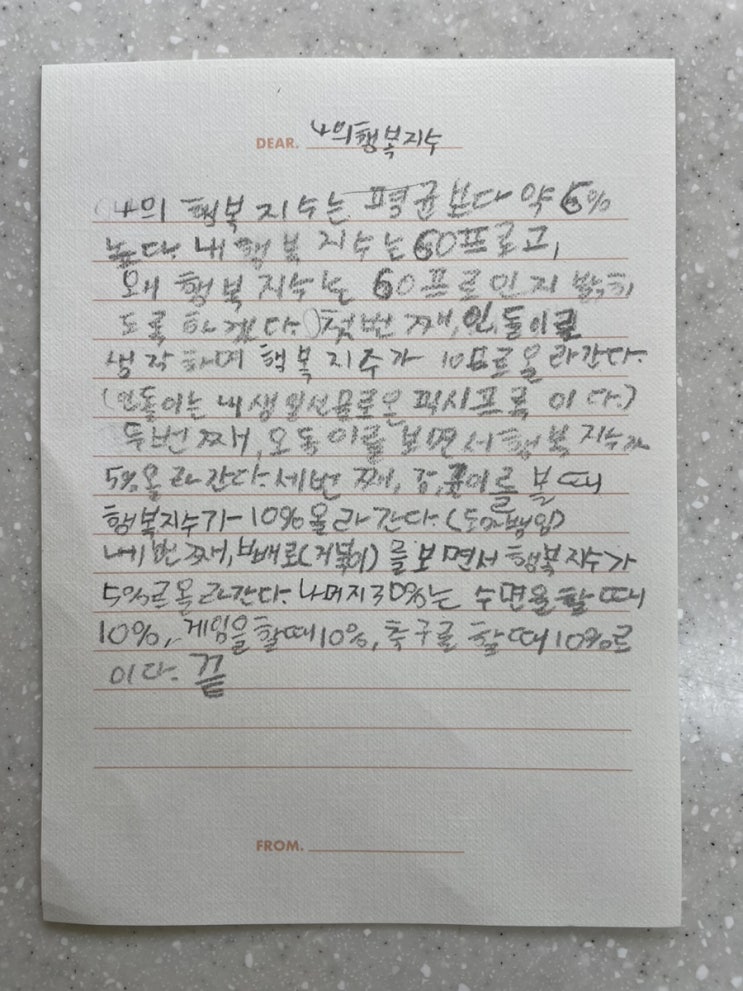 DEAR. 나의행복지수
나의 행복 지수는 평균보다 약 6%
높다. 내 행복 지수는 60프로고,
왜 행복 지수는 60프로인지 밝히
도록 하겠다. 첫번 째, 인,돌이로
생각하며 행복 지수가 10프로올 라간다.
(인돌이는 내생일선물로온 픽시프록 이 다.)
두번 째, 오독 이를 보면 서행복 지수가
5%올 라 간다. 세번 째, 를 볼 때
행복지수가 10%올 라 간다. (도마뱀임)
네번 째, (거북이) 를보면서 행복지수가
5%르올라간다. 나머지30%는 수면을할 때
10%, 게임을 할때10%, 축구를 할 때10%로
이다. 끝
FROM.